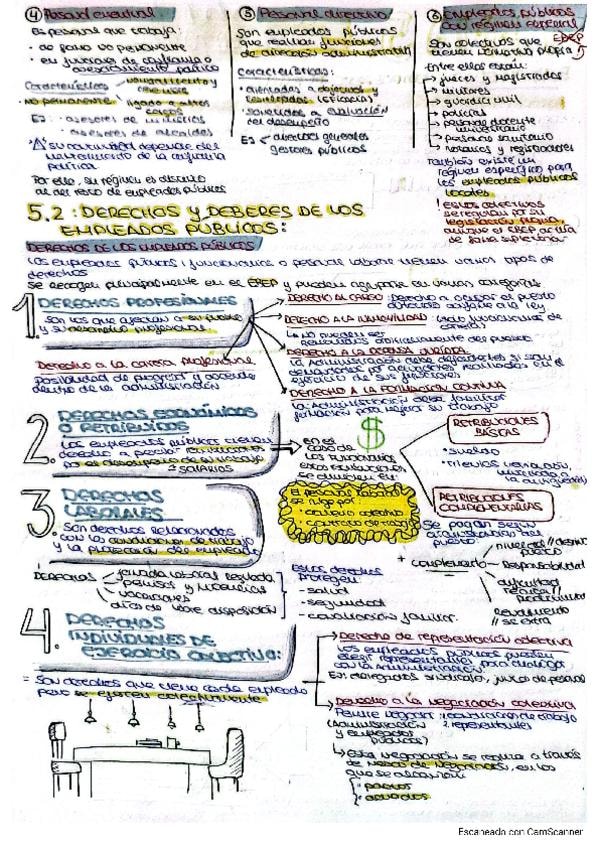 ④ Personal eventual
Es personal que trabaja:
• de forma no permanente
• en funciones de confianza o asesoramiento político
Características
nombramiento y cese libres
NO permanente
ligado a altos cargos
EJ: - asesores de ministros
- asesores de alcaldes
Por ello, su régimen es distinto
al del resto de empleados públicos
⑤ Personal directivo
Son empleados públicos
que realizan funciones
de dirección administrativa
Características:
• orientadas a objetivos y
resultados (eficacia)
• sometidos a evaluación
del desempeño
EJ: directores generales
gestores públicos
⑥ Empleados públicos
con régimen especial
EBEP
Son colectivos que
tienen normativa propia
Entre ellos están:
→ jueces y magistrados
→ militares
→ guardia civil
→ policías
→ personal docente
universitario
→ personal sanitario
→ notarios y registradores
También existe un
régimen específico para
los empleados públicos
locales
! Estos colectivos
se regulan por su
legislación propia,
aunque el EBEP actúa
de forma supletoria
5.2: DERECHOS Y DEBERES DE LOS
EMPLEADOS PÚBLICOS:
DERECHOS DE LOS EMPLEADOS PÚBLICOS
Los empleados públicos, funcionarios o personal laboral tienen varios tipos de
derechos
Se recogen principalmente en el EBEP y pueden agruparse en varias categorías:
1. DERECHOS PROFESIONALES
Son los que afectan a su puesto
y su desarrollo profesional
Derecho a la carrera profesional
Posibilidad de progresar y ascender
dentro de la administración
DERECHO AL CARGO: Derecho a ocupar el puesto
DERECHO A LA INAMOVILIDAD (solo funcionarios de
carrera)
↳ No pueden ser
removidos arbitrariamente del puesto
DERECHO A LA DEFENSA JURÍDICA
La Administración debe defenderlos si son
denunciados por actuaciones realizadas en el
ejercicio de sus funciones
DERECHO A LA FORMACIÓN CONTINUA
La Administración debe facilitar
formación para mejorar su trabajo
2. DERECHOS ECONÓMICOS
O RETRIBUIDOS
Los empleados públicos tienen
derecho a percibir retribuciones
por el desempeño de su trabajo
= SALARIOS
En el
caso de
los funcionarios
estas retribuciones
se dividen en:
$
RETRIBUCIONES
BÁSICAS
• sueldo
• trienios
RETRIBUCIONES
COMPLEMENTARIAS
El personal laboral
se rige por:
• convenio colectivo
• contrato de trabajo
Se pagan según
características del
puesto:
+ complementario
responsabilidad
rendimiento
// s. extra
3. DERECHOS
LABORALES
Son derechos relacionados
con las condiciones de trabajo
y la protección del empleado
DERECHOS
jornada laboral regulada
permisos y licencias
vacaciones
días de libre disposición
Estos derechos
protegen:
- salud
- seguridad
- conciliación familiar
4. DERECHOS
INDIVIDUALES DE
EJERCICIO COLECTIVO:
= Son derechos que tiene cada empleado
pero se ejercen colectivamente
→ Derecho de representación colectiva
Los empleados públicos pueden
elegir representantes para dialogar
con la Administración
EJ: delegados sindicales, juntas de personal
→ Derecho a la negociación colectiva
Permite negociar condiciones de trabajo
(Administración
representantes
y empleados
públicos)
↳ Esta negociación se realiza a través
de mesas de negociación, en las
que se alcanzan:
• pactos
• acuerdos
Escaneado con CamScanner